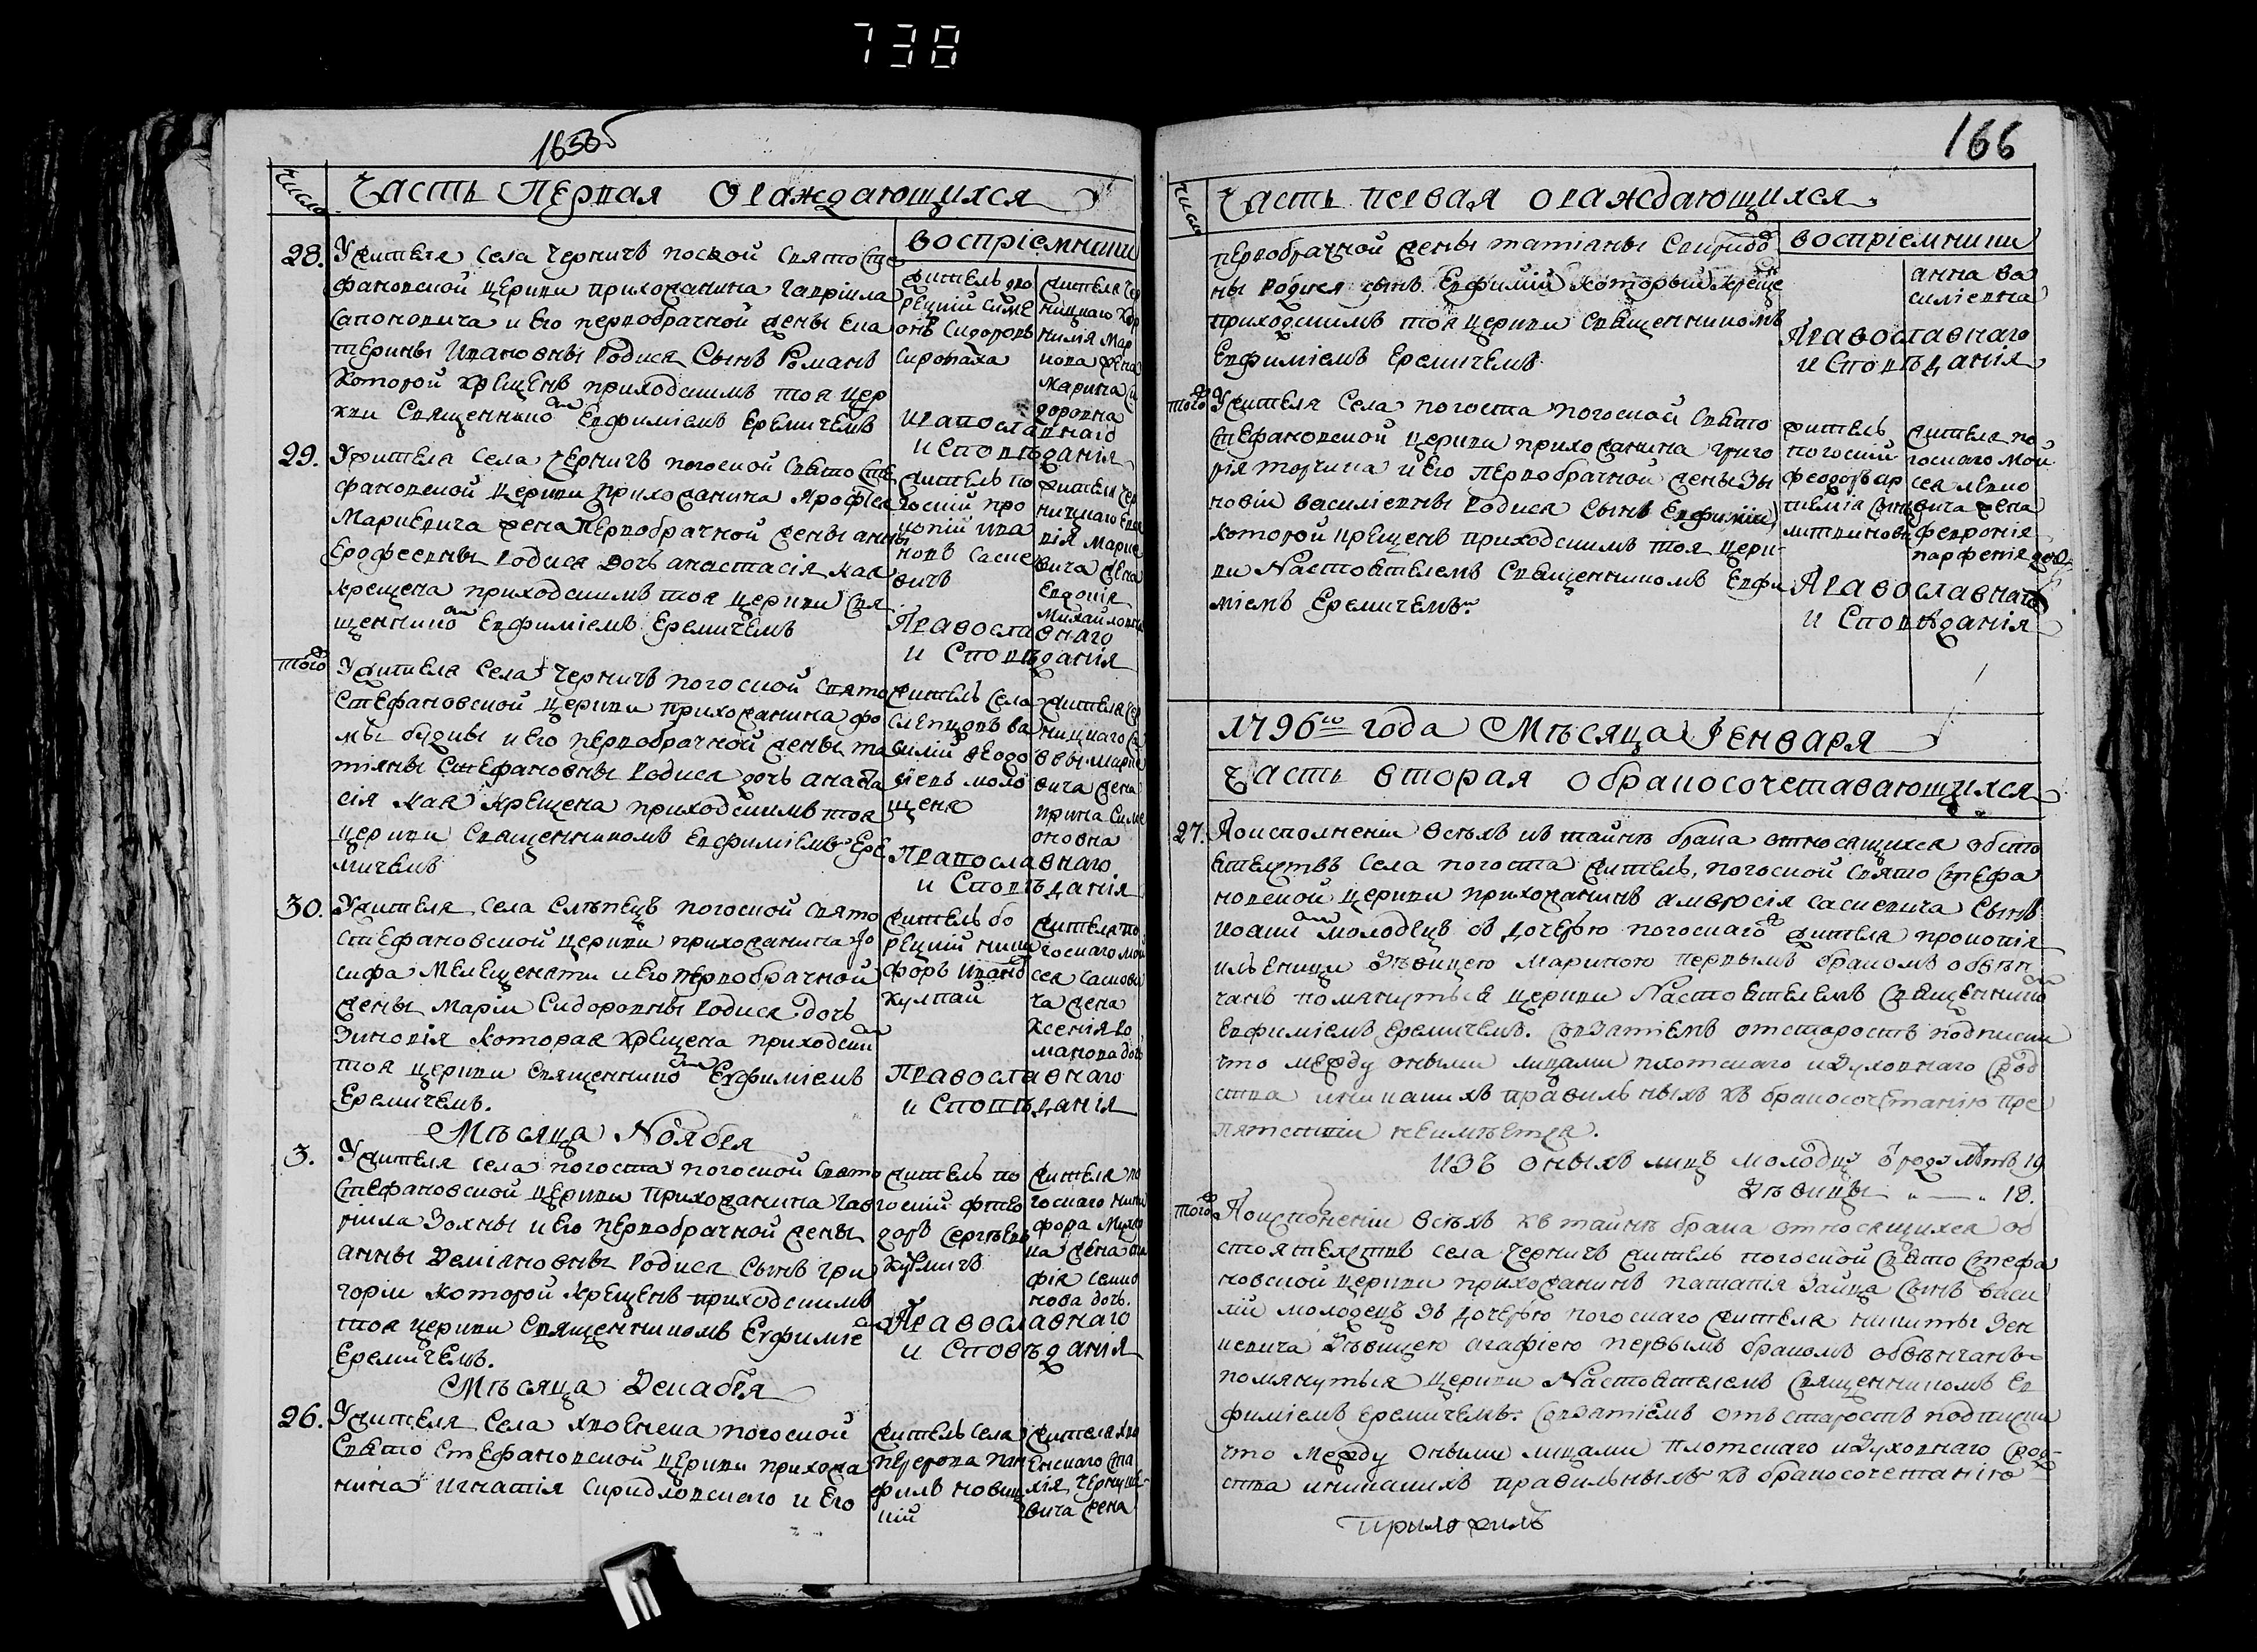 738
165об
Число
Часть Первая о раждающихся
воспріемники
28. У жителя Села Черничъ погской Свято Сте
фановской Церкви прихожанина Гавріила
Сапоновича и Его первобрачной жены Ека
терины Ивановны родися Сынъ Романъ
которой крещенъ приходскимъ тоя цер
кви Священникомъ Евфиміемъ Еремичемъ
житель дво
рецкій Симе
онъ Сидоровъ
Сиротаха
жителя Чер
ницкаго Кор
нилія Мар
кова жена
Марина Си
доровна
Православнаго
исповѣданія
29. У жителя Села Черничъ погоской Свято Сте
фановской Церкви Прихожанина Ярофея
Марцевича жена Первобрачной жены анны
Ерофеевны родися дочь анастасія кая
крещена приходскимъ тоя церкви Свя
щенникомъ Евфиміемъ Еремичемъ
житель по
госкій про
копій ива
новъ Саске
вичъ
жителя Чер
ницкаго
вія Марце
вича жена
Евдокія
Михайловна
Православнаго
исповѣданія
того
У жителя Села Черничъ погоской Свято
Стефановской церкви прихожанина фо
мы будны и Его первобрачной жены та
тіяны Стефановны родися дочь анаста
сія кая крещена приходскимъ тоя
церкви Священникомъ Евфиміемъ Ере
мичемъ
житель Села
Слепцовъ ва
силій феодо
сіевъ моло
щеня
жителя Чер
ницкаго Са
ввы Марце
вича жена
ирина Симе
оновна
Православнаго
исповѣданія
30. У жителя Села Слѣпецъ погоской Свято
Стефановской церкви прихожанина Іо
сифа Мелещеняти и Его первобрачной
жены Маріи Сидоровны родися дочь
Зиновія которая крещена приходским
тоя церкви Священникомъ Евфиміемъ
Еремичемъ.
житель бо
рецкій ники
форъ иванов
кулпай
жителя по
госкаго мои
сея Сасков
ча жена
Ксенія Ро
манова дочь
Православнаго
исповѣданія
Мѣсяца Ноября
3. У жителя Села погоста погоской Свято
Стефановской церкви Прихожанина Гав
ріила Золны и Его первобрачной жены
анны Деміановны родися Сынъ Гри
горіи которой крещенъ приходскимъ
тоя церкви Священникомъ Евфиміем
Еремичемъ.
житель по
госкій фтео
доръ Сергѣевъ
кузмичъ
жителя по
госкаго ники
фора
ца жена
фія Семио
нова дочь.
Православнаго
исповѣданія
Мѣсяца Декабря
26. У жителя Села хвоенска погоской
Свято Стефановской церкви прихожа
нина игнатія Спридловского и Его
житель Села
перерова пан
филъ новиц
кій
жителя хво
енскаго
хія Черну
вича жена
166
Число
Часть первая о раждающихся
воспріемники
первобрачной жены татіаны Спиридо
ны родися сынъ Евфимій который креще
приходскимъ тоя церкви Священникомъ
Евфиміемъ Еремичемъ
анна ва
силіевна
Православнаго
исповѣданія
того
У жителя Села погоста погоской Свято
Стефановской церкви прихожанина Григо
рія торчила и Его первобрачной жены Зы
новіи василіевны родися Сынъ Евфимій
которой крещенъ приходскимъ тоя церк
ви Настоятелемъ Священникомъ Евфи
міемъ Еремичемъ.
житель
погоскій
феодоръ ар
темія Сынъ
литвиновъ
жителя по
госкаго мои
сея левко
вича жена
феврония
парфенія доч
Православнаго
исповѣданія
1796го года Мѣсяца Генваря
Часть вторая о бракосочетавающихся
27. Поисполненіи всѣхъ къ тайнѣ брака относящихся обсто
ятелствъ Села погоста житель, погоской Свято Стефа
новской церкви прихожанинъ амвросія саскевича Сынъ
иоаннъ молодецъ съ дочерью погоскаго жителя прокопія
ильеници дѣвицею Мариною первымъ бракомъ обвѣн
чанъ помянутыя церкви Настоятелемъ Священником
Евфиміемъ Еремичемъ. Совзятіемъ отстаростъ подписки
что между оными лицами плотскаго идуховнаго срод
ства иникакихъ правильныхъ къ бракосочетанію пре
пятствіи неимѣется.
изъ оныхъ лицъ молодцу в роду лѣтъ 19
дѣвицы „—„ 18.
того
Поисполненіи всѣхъ къ тайнѣ брака относящихся об
стоятелствъ села Черничъ житель погоской Свято Стефа
новской церкви прихожанинъ патапія Зайца Сынъ васи
лій молодецъ Зъ дочерью погоскаго жителя никиты Зен
кевича дѣвицею агафіею первымъ бракомъ обвѣнчанъ
помянутыя церкви Настоятелемъ Священникомъ Ев
фиміемъ Еремичемъ. Совзятіемъ отъ старостъ подписки
что между оными лицами плотскаго идуховнаго срод
ства иникакихъ правильныхъ къ бракосочетанію